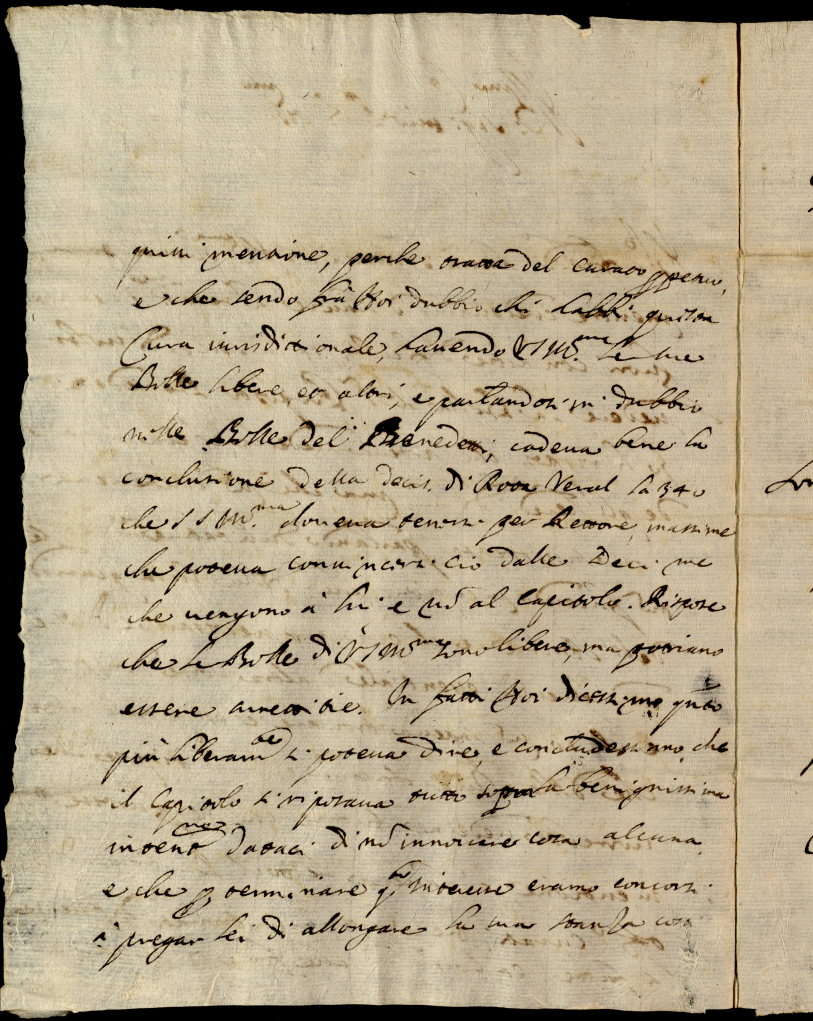 quivi mensione, perche tratta del curato perpetuo,
e che sendo frà Noi dubbio chi habbi questa
Cura iurisdictionale, havendo VS Ill.ma le sue
Bolle libere, et altri, e portandosi in dubbio
nelle Bolle del Benedetti, cadeva bene la
conclusione della decis. di Rota Veral la 340
che SS Ill.ma doveva tenersi per Rettore, massime
che poteva convincersi ciò dalle Decime
che vengono à lui e nõ al Capitolo. Rispose
che le Bolle di VS Ill.ma sono libere, ma potriano
essere surretitie. In fatti Noi dicessimo quto
più liberamte si poteva dire, e concludessimo, che
il Capitolo si riposava tutto sopra la benignissima
intentne dataci di nõ innovare cosa alcuna
e che p terminare qto interesse eramo concorsi
à pregar lei di allongare la sua stanza con